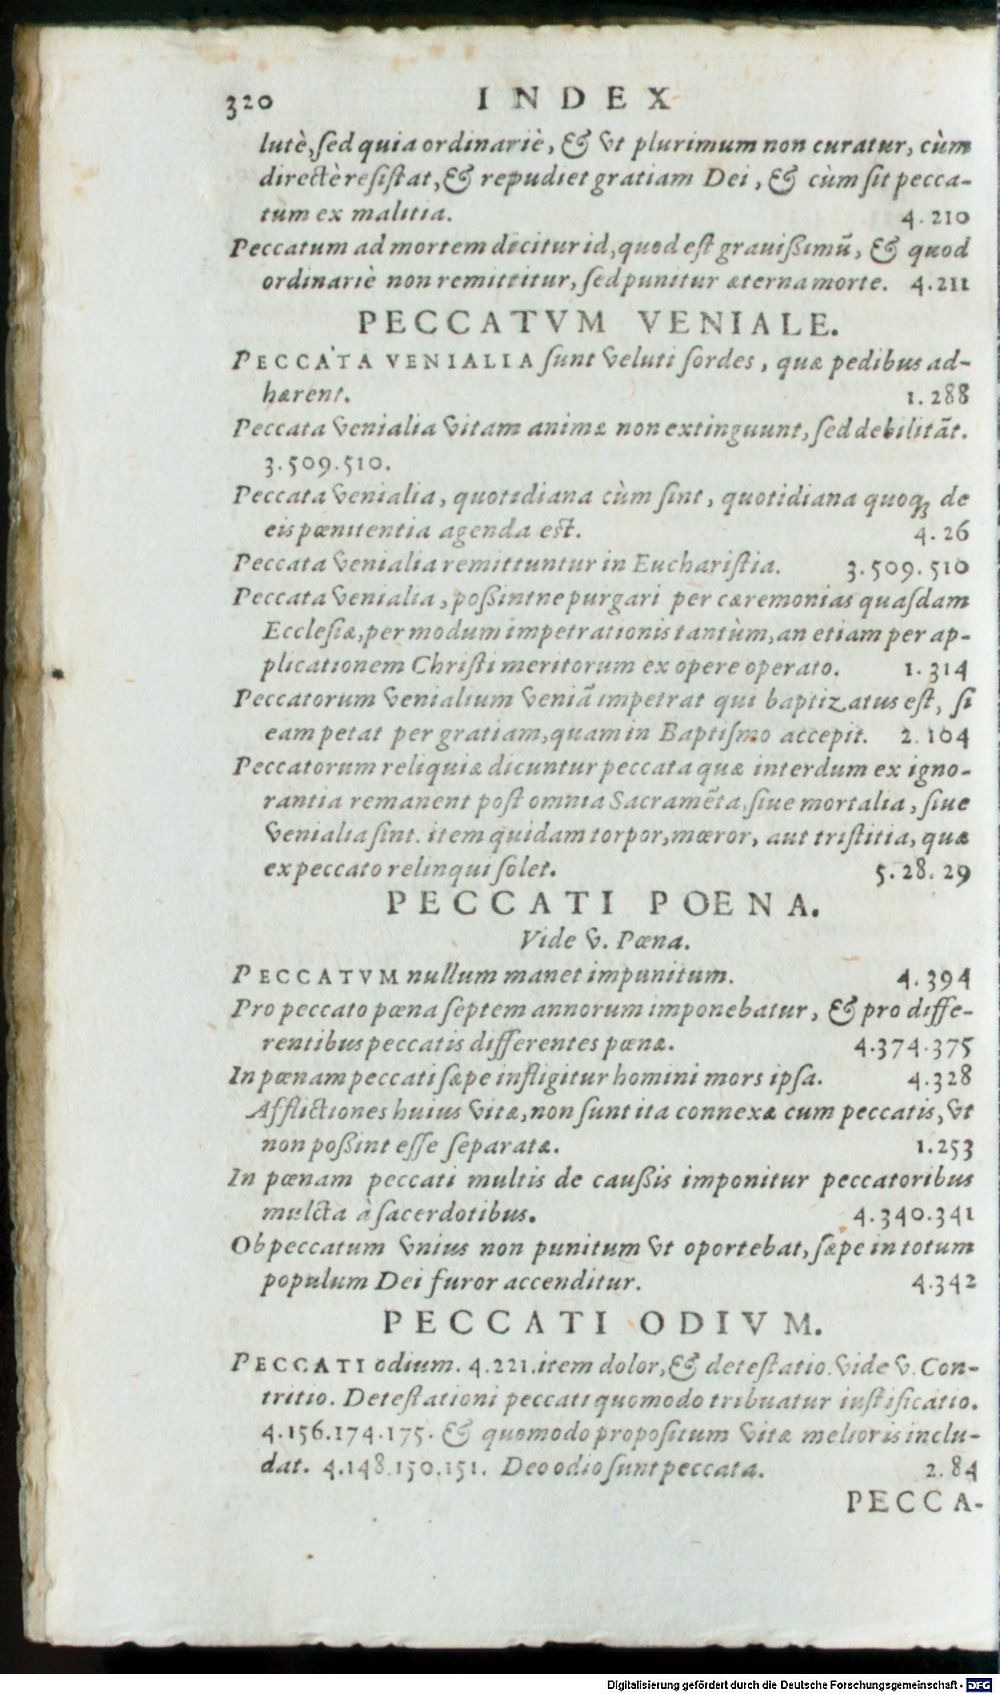 320 INDEX
lutè, sed quia ordinariè, & vt plurimum non curatur, cùm
directè resistat, & repudiet gratiam Dei, & cùm sit pecca-
tum ex malitia. 4.210
Peccatum ad mortem dicitur id, quod est grauißimū, & quod
ordinariè non remittitur, sed punitur æterna morte. 4.211
PECCATVM VENIALE.
PECCATA VENIALIA sunt veluti sordes, quæ pedibus ad-
hærent. 1.288
Peccata venialia vitam animæ non extinguunt, sed debilitãt.
3.509.510.
Peccata venialia, quotidiana cùm sint, quotidiana quoq; de
eis pœnitentia agenda est. 4.26
Peccata venialia remittuntur in Eucharistia. 3.509.510
Peccata venialia, poßintne purgari per cæremonias quasdam
Ecclesiæ, per modum impetrationis tantùm, an etiam per ap-
plicationem Christi meritorum ex opere operato. 1.314
Peccatorum venialium veniã impetrat qui baptizatus est, si
eam petat per gratiam, quam in Baptismo accepit. 2.104
Peccatorum reliquiæ dicuntur peccata quæ interdum ex igno-
rantia remanent post omnia Sacramẽta, siue mortalia, siue
venialia sint. item quidam torpor, mœror, aut tristitia, quæ
ex peccato relinqui solet. 5.28.29
PECCATI POENA.
Vide v. Pœna.
PECCATVM nullum manet impunitum. 4.394
Pro peccato pœna septem annorum imponebatur, & pro diffe-
rentibus peccatis differentes pœnæ. 4.374.375
In pœnam peccati sæpe infligitur homini mors ipsa. 4.328
Afflictiones huius vitæ, non sunt ita connexæ cum peccatis, vt
non poßint esse separatæ. 1.253
In pœnam peccati multis de caußis imponitur peccatoribus
mulcta à sacerdotibus. 4.340.341
Ob peccatum vnius non punitum vt oportebat, sæpe in totum
populum Dei furor accenditur. 4.342
PECCATI ODIVM.
PECCATI odium. 4.221. item dolor, & detestatio. vide v. Con-
tritio. Detestationi peccati quomodo tribuatur iustificatio.
4.156.174.175. & quomodo propositum vitæ melioris inclu-
dat. 4.148.150.151. Deo odio sunt peccata. 2.84
PECCA-
Digitalisierung gefördert durch die Deutsche Forschungsgemeinschaft - DFG